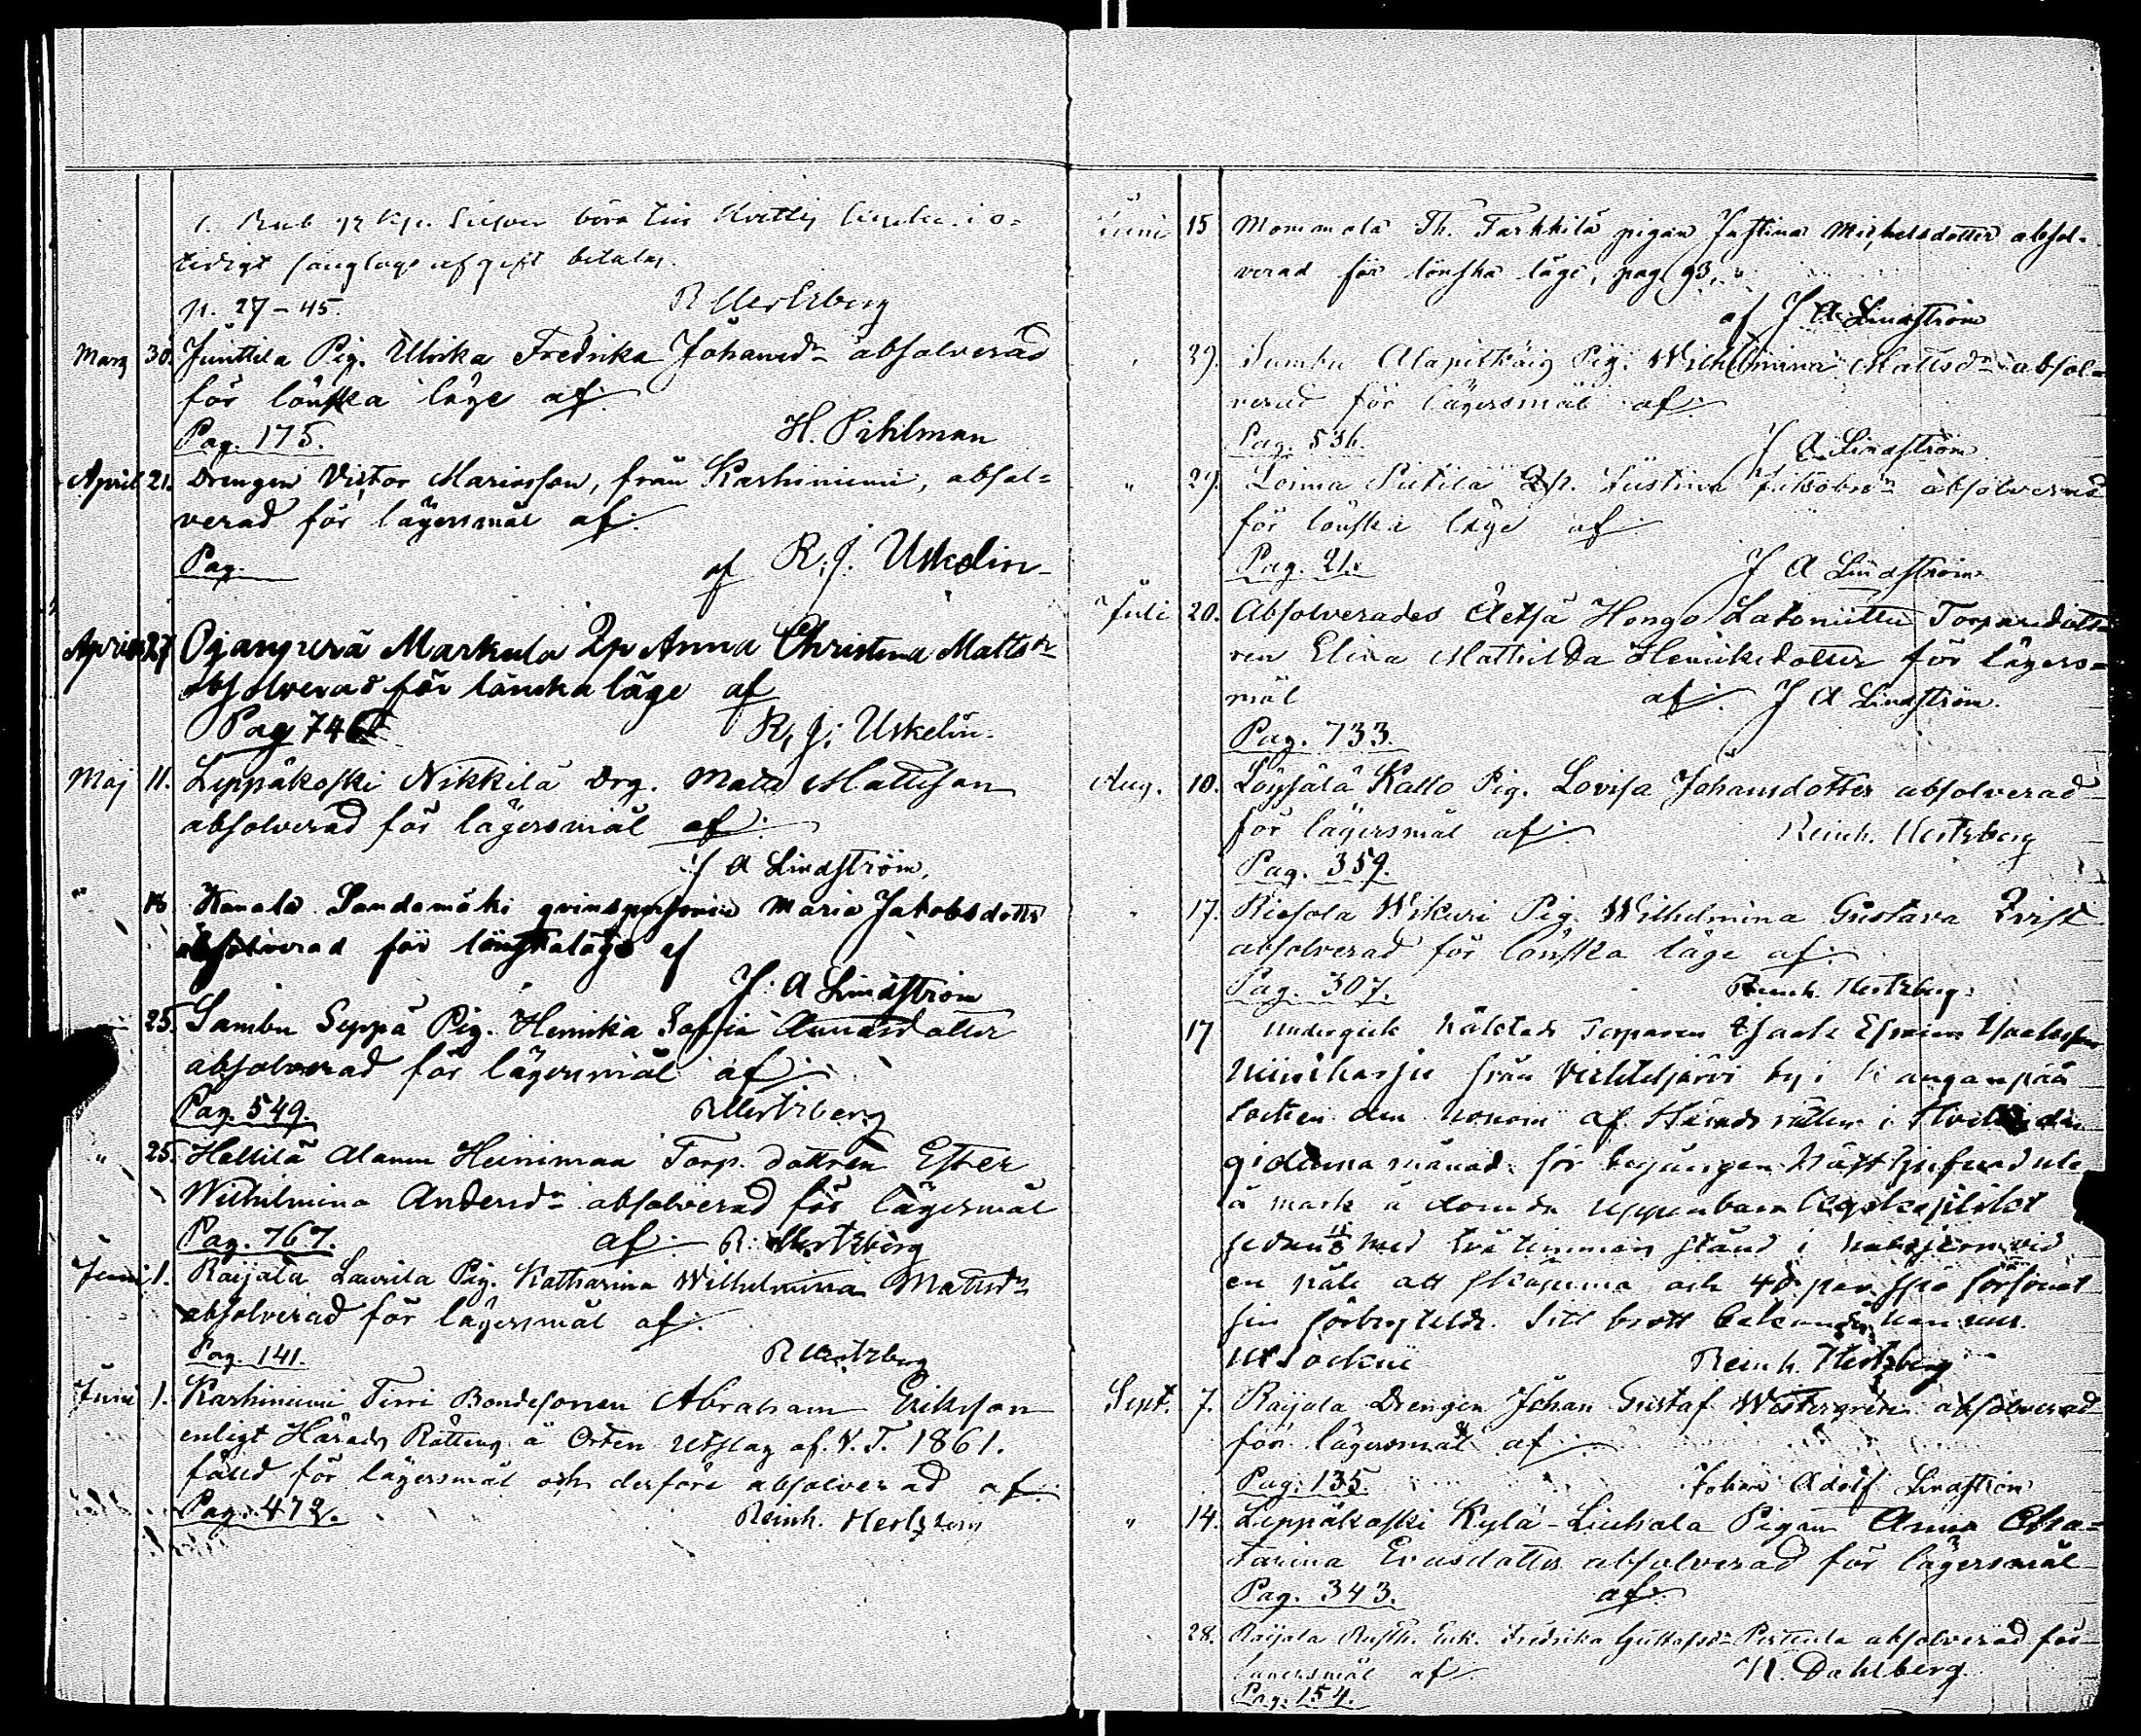 1. Rub 92 kop. Silfver böra till
tidigt sänglags afgift betalas.
p. 27-45. R Hertzberg
Mars 30. Junttila Pig. Ulrika Fredrika Johansdr absolverad
för lönska läge af
Pag. 175. H. Pihlman
April 21. Drengen Victor Mariasson, från Karhiniemi, absol-
verad för lägersmål af.
Pag. af R. J. Uskelin
April 27 Ojanperä Markula Qp Anna Christina Mattsdr
absolverad för lönska läge af
Pag 746 R. J. Uskelin
Maj 11. Leppäkoski Nikkilä Drg. Matts Mattsson
absolverad för lägersmål af.
J A Lindström,
" 18 Kanala Sandamäki qvinspersonen Maria Jakobsdotter
absolverad för lönskaläge af
J. A Lindström
25. Sambu Seppä Pig. Henrika Sofia Annasdotter
absolverad för lägersmål af
Pag. 549. R Hertzberg
" 25. Hellilä Alanen Heinimaa Torp. dottren Ester
Wilhelmina Andersdr absolverad för lägersmål
Pag. 767. af. R. Hertzberg
Juni 1. Raijala Laurila Pig. Katharina Wilhelmina Mattsdr
absolverad för lägersmål af.
Pag. 141. R Hertzberg
Juni 1. Karhiniemi Tirri Bondesonen Abraham Eriksson
enligt Härads Rättens å Orten utslag af V. T. 1861.
fälld för lägersmål och derföre absolverad af.
Pag. 472. Reinh. Hertzberg
Juni 15 Mommola Th. Tarkkilä pigan Justina Michelsdotter absol-
verad för lönska läge, pag 93.
af J A Lindström
" 29. Sambu Alapitkäis Pig. Wilhelmina Mattsdr absol-
verad för lägersmål af
Pag. 536. J A Lindström
" 29. Loima Piitilä Qp. Justina Jakobsdr absolverad
för lönska läge af
Pag. 21. J A Lindström
Juli 20. Absolverades Äetsä Hongo Latoniittu Torparedott-
ren Elina Mathilda Henriksdotter för lägers-
mål af. J A Lindström.
Pag. 733.
Aug. 10. Löysälä Kallo Pig. Lovisa Johansdotter absolverad
för lägersmål af. Reinh. Hertzberg
Pag. 359.
" 17. Riesola Wikuri Pig. Wilhelmina Gustava Qvist
absolverad för lönska läge af.
Pag. 307. Reinh. Hertzberg.
17 Undergick Torparen Isack Efraim Isacksson
Niiniharju från Vichteljärvi by i Kanganpää
socken den honom af Häradsrätten i
månad för begången
å mark ådömda uppenbara
sedan med två timmars stånd i vid
en påle att skämma och 40 par spö försonat
sin förbrytelse. Sitt brott bekände han
Reinh. Hertzberg
Sept. 7. Raijala Drengen Johan Gustaf Westergrén absolverad
för lägersmål af
Pag. 135. Johan Adolf Lindström
" 14. Leppäkoski Kylä-Liuhala Pigan Anna Cha-
tarina Evasdotter absolverad för lägersmål
Pag. 343. af.
28. Raijala Rusth. Enk. Fredrika Gustafsdr Perttula absolverad för
lägersmål af. K. Dahlberg.
Pag. 154.